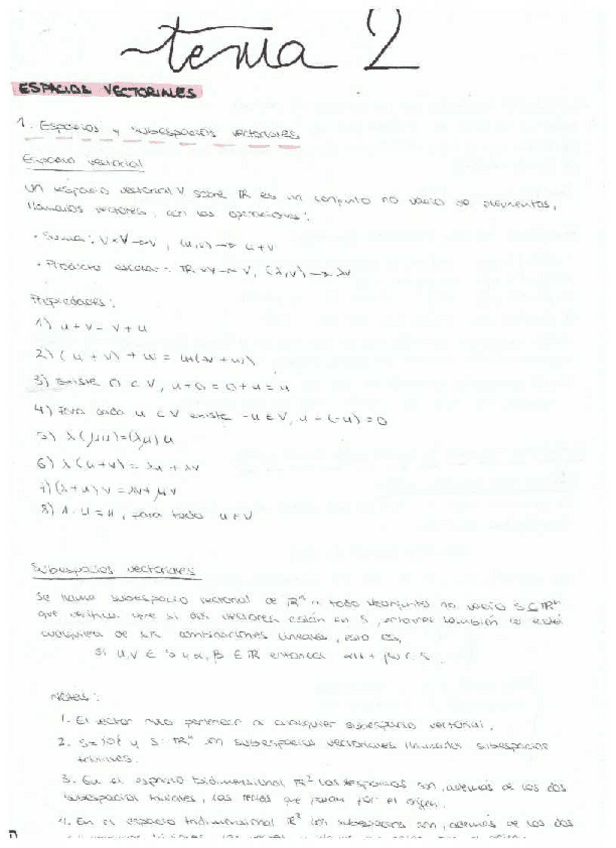 tema 2
ESPACIOS VECTORIALES
1. Espacios y subespacios vectoriales
Espacio vectorial
Un espacio vectorial V sobre ℝ es un conjunto no vacío de elementos,
llamados vectores, con las operaciones:
· Suma: V×V→V, (u,v)→ u+v
· Producto escalar: ℝ×V→V, (λ,v)→ λv
Propiedades:
1) u+v = v+u
2) (u+v)+w = u+(v+w)
3) Existe 0 ∈ V, u+0=0+u=u
4) Para cada u ∈ V existe -u ∈ V, u-(-u)=0
5) λ(μu)=(λμ)u
6) λ(u+v)=λu+λv
7) (λ+μ)v=λv+μv
8) 1·u=u, para todo u ∈ V
Subespacios vectoriales
Se llama subespacio vectorial de ℝⁿ a todo no vacío S⊂ℝⁿ
que verifica que si dos vectores están en S, entonces también lo está
cualquiera de sus combinaciones lineales, esto es,
Si u,v ∈ S y α, β ∈ ℝ entonces αu+βv ∈ S.
Notas:
1. El vector nulo pertenece a cualquier subespacio vectorial.
2. S={0} y S=ℝⁿ son subespacios vectoriales llamados subespacios
triviales.
3. En el espacio bidimensional ℝ² los son, además de los dos
subespacios triviales, las rectas que pasan por el origen.
4. En el espacio tridimensional ℝ³ los subespacios son, además de los dos